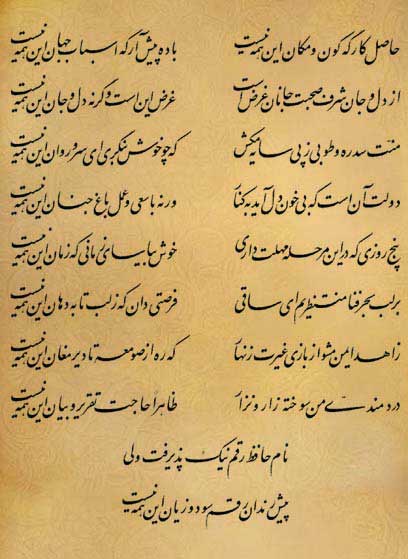 حاصل کارگه کون و مکان این همه نیست باده پیش آر که اسباب جهان این همه نیست
از دل و جان شرف صحبت جانان غرض است غرض این است وگرنه دل و جان این همه نیست
منت سدره و طوبی ز پی سایه مکش که چو خوش بنگری ای سرو روان این همه نیست
دولت آن است که بی خون دل آید به کنار ورنه با سعی و عمل باغ جنان این همه نیست
پنج روزی که در این مرحله مهلت داری خوش بیاسای زمانی که زمان این همه نیست
بر لب بحر فنا منتظریم ای ساقی فرصتی دان که ز لب تا به دهان این همه نیست
زاهد ایمن مشو از بازی غیرت زنهار که ره از صومعه تا دیر مغان این همه نیست
دردمندی من سوخته زار و نزار ظاهرا حاجت تقریر و بیان این همه نیست
نام حافظ رقم نیک پذیرفت ولی
پیش رندان رقم سود و زیان این همه نیست